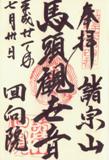 奉拝
諸宗山
馬頭観世音
回向院
平成廿一年
七月卅日